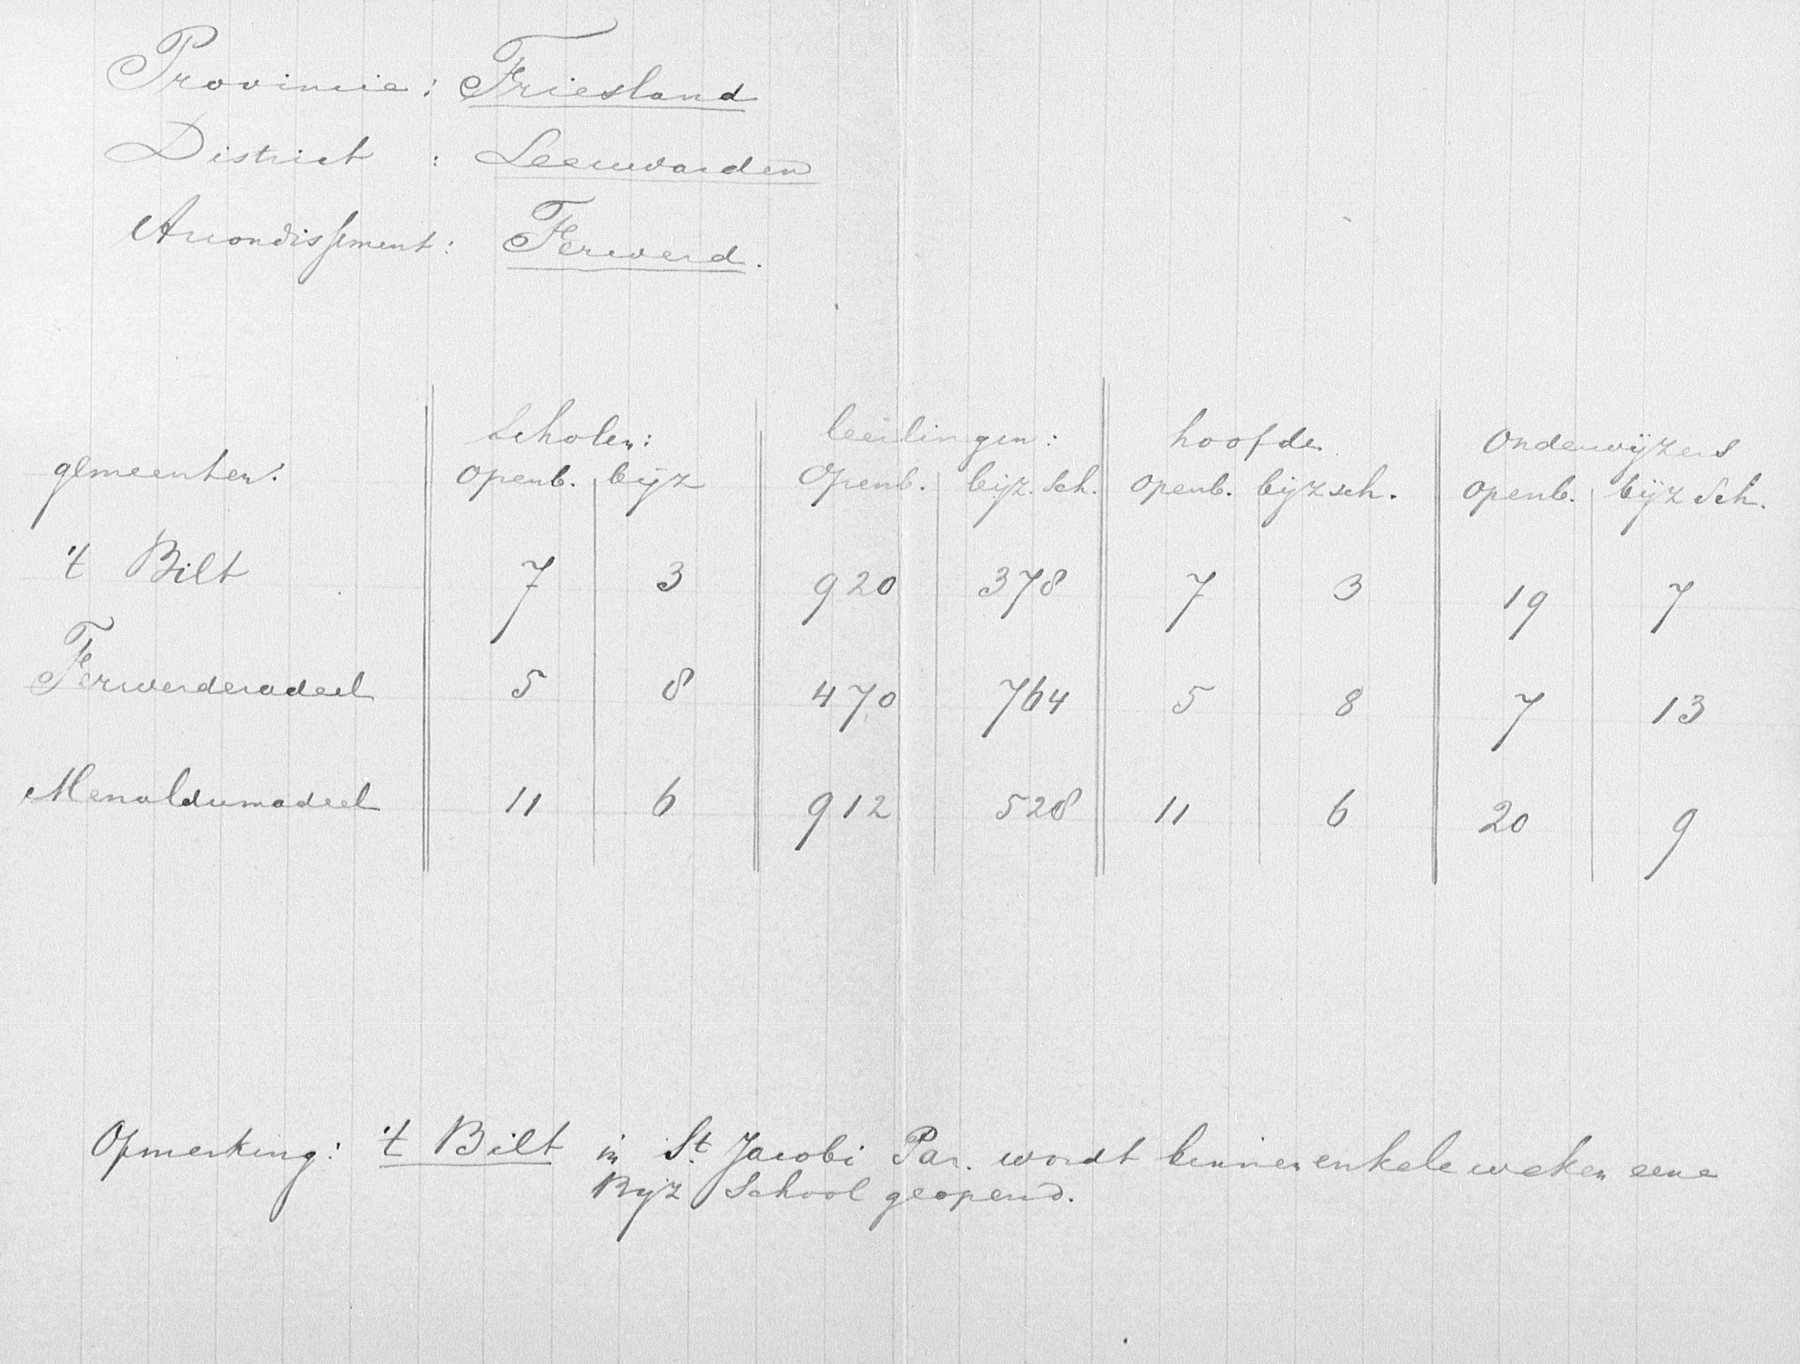 Provincie: Friesland
District : Leeuwarden
Arrondissement: Ferwerd.
Scholen: leerlingen: hoofden Onderwijzers
gemeenten: openb. bijz Openb. bijz. sch. openb. bijz sch. openb. bijz Sch.
't Bilt 7 3 920 378 7 3 19 7
Ferwerderadeel 5 8 470 764 5 8 7 13
Menaldumadeel 11 6 912 528 11 6 20 9
Opmerking: 't Bilt in St. Jacobi Par. wordt binnen enkele weken eene
Bijz School geopend.